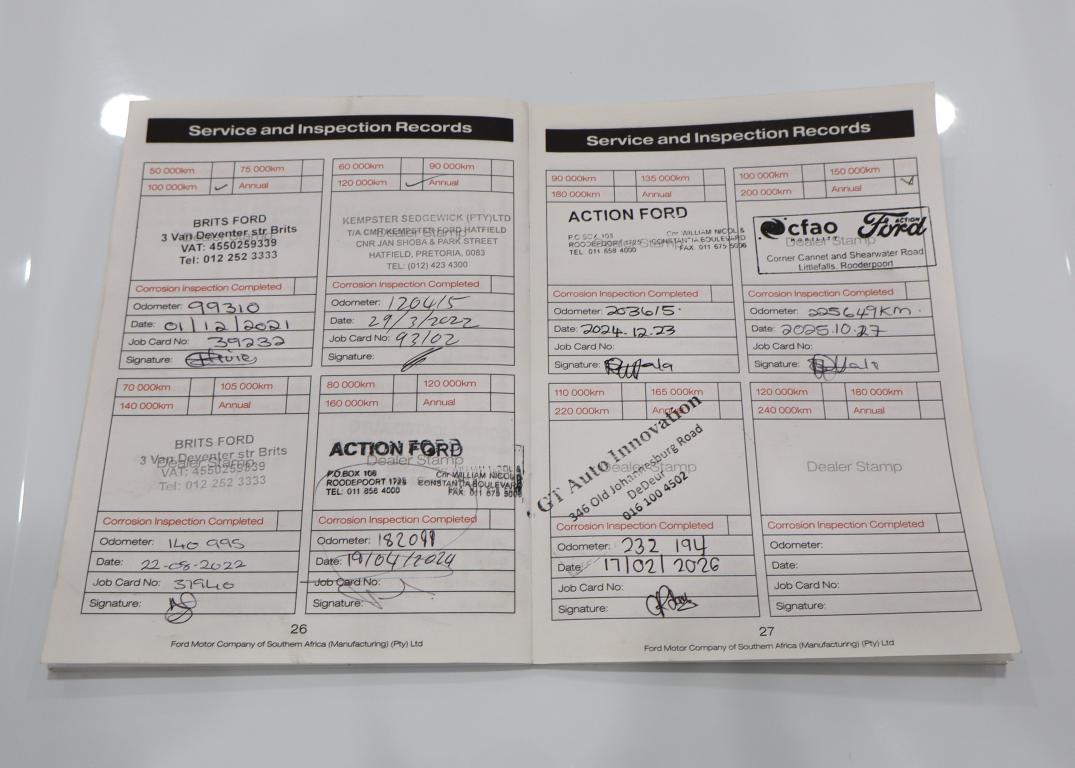 Service and Inspection Records
50 000km 75 000km
100 000km ✓ Annual
BRITS FORD
3 Van Deventer str Brits
VAT: 4550259339
Tel: 012 252 3333
Corrosion Inspection Completed
Odometer: 99310
Date: 01/12/2021
Job Card No: 39232
Signature:
60 000km 90 000km
120 000km ✓ Annual
KEMPSTER SEDGEWICK (PTY)LTD
T/A CMH KEMPSTER FORD HATFIELD
Dealer Stamp
CNR JAN SHOBA & PARK STREET
HATFIELD, PRETORIA, 0083
TEL: (012) 423 4300
Corrosion Inspection Completed
Odometer: 120415
Date: 29/3/2022
Job Card No: 93102
Signature:
70 000km 105 000km
140 000km Annual
BRITS FORD
3 Van Deventer str Brits
Dealer Stamp
VAT: 4550259339
Tel: 012 252 3333
Corrosion Inspection Completed
Odometer: 140 995
Date: 22-08-2022
Job Card No: 37940
Signature:
80 000km 120 000km
160 000km Annual
ACTION FORD
Dealer Stamp
P.O.BOX 108 Cnr WILLIAM NICOL &
ROODEPOORT 1725 CONSTANTIA BOULEVARD
TEL: 011 858 4000 FAX: 011 675 5006
Corrosion Inspection Completed
Odometer: 182091
Date: 19/04/2024
Job Card No:
Signature:
26
Ford Motor Company of Southern Africa (Manufacturing) (Pty) Ltd
Service and Inspection Records
90 000km 135 000km
180 000km Annual
ACTION FORD
P.O BOX 108 Cnr WILLIAM NICOL &
ROODEPOORT 1725 CONSTANTIA BOULEVARD
TEL: 011 858 4000 FAX 011 675 5006
Corrosion Inspection Completed
Odometer: 203615.
Date: 2024.12.23
Job Card No:
Signature:
100 000km 150 000km
200 000km Annual ✓
cfao ACTION
MOBILITY Ford
Dealer Stamp
Corner Cannet and Shearwater Road
Littlefalls, Rooderpoort
Corrosion Inspection Completed
Odometer: 225649km.
Date: 2025.10.27
Job Card No:
Signature:
110 000km 165 000km
220 000km Annual
GT Auto Innovation
Dealer Stamp
346 Old Johannesburg Road
DeDeur
016 100 4502
Corrosion Inspection Completed
Odometer: 232 194
Date: 17/02/2026
Job Card No:
Signature:
120 000km 180 000km
240 000km Annual
Dealer Stamp
Corrosion Inspection Completed
Odometer:
Date:
Job Card No:
Signature:
27
Ford Motor Company of Southern Africa (Manufacturing) (Pty) Ltd